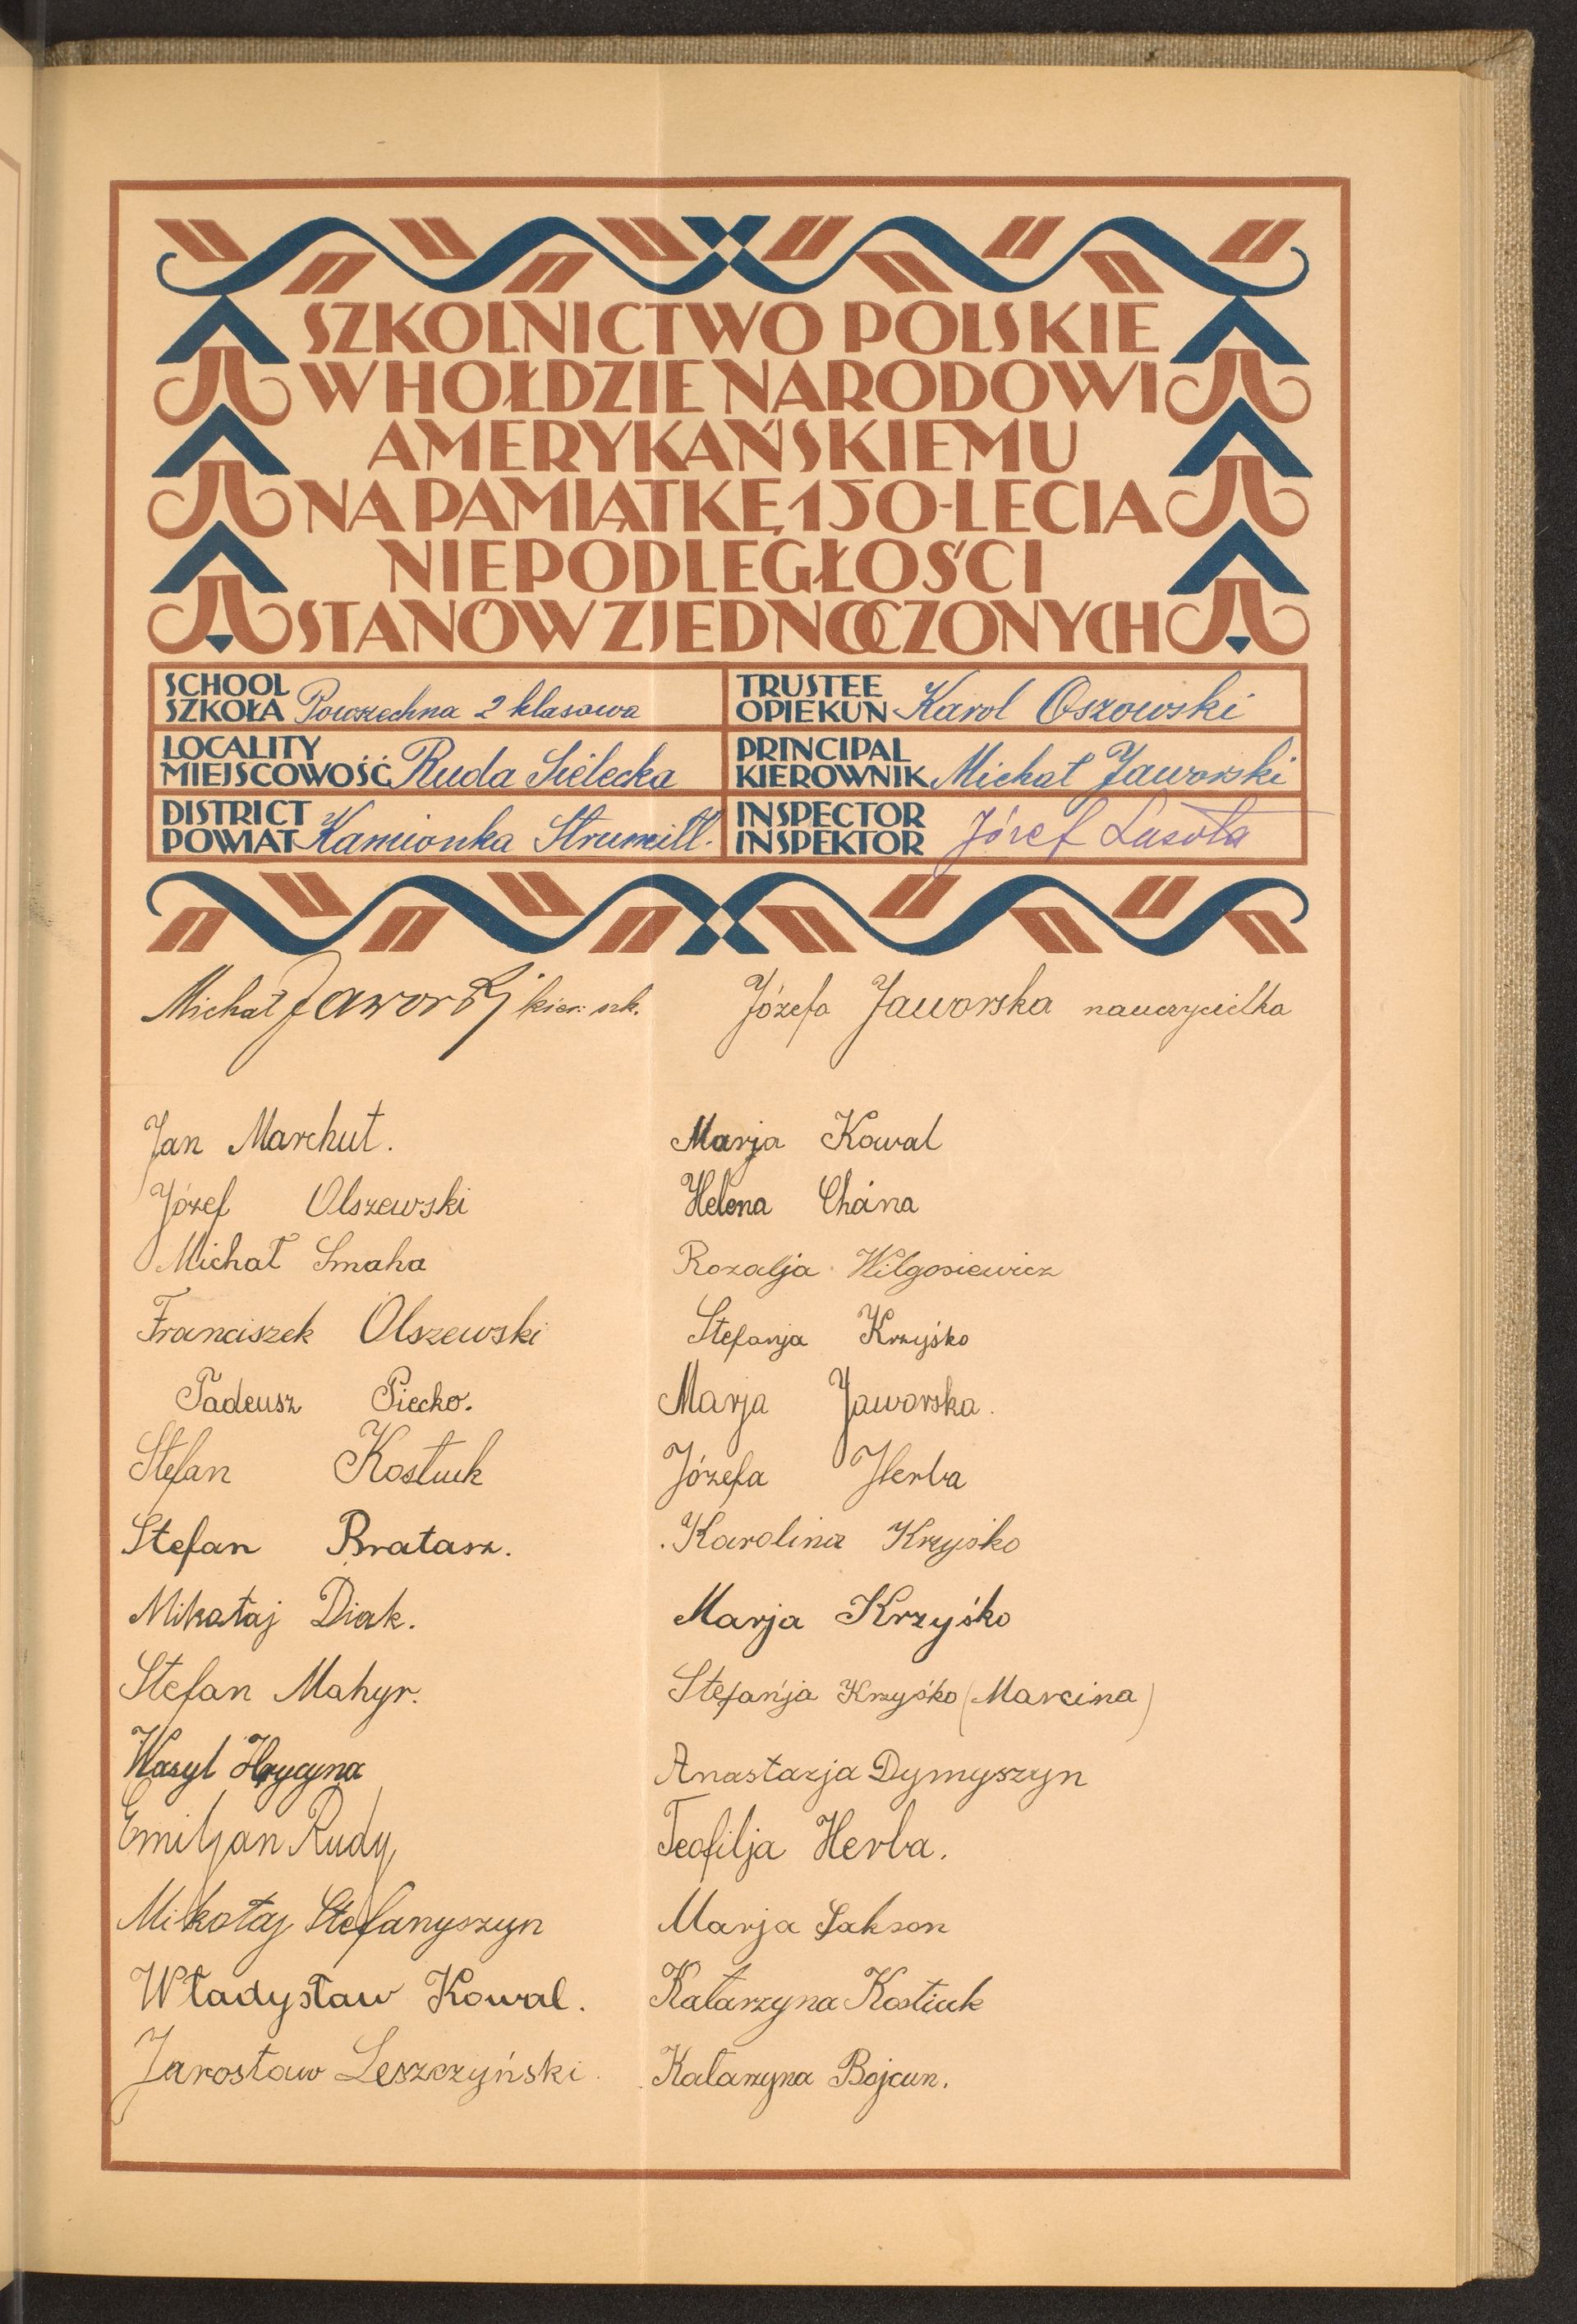 SZKOLNICTWO POLSKIE
W HOŁDZIE NARODOWI
AMERYKAŃSKIEMU
NA PAMIĄTKĘ 150-LECIA
NIEPODLEGŁOŚCI
STANÓW ZJEDNOCZONYCH
SCHOOL
SZKOŁA Powszechna 2 klasowa
TRUSTEE
OPIEKUN Karol Oszowski
LOCALITY
MIEJSCOWOŚĆ Ruda Sielecka
PRINCIPAL
KIEROWNIK Michał Jaworski
DISTRICT
POWIAT Kamionka Strumiłł.
INSPECTOR
INSPEKTOR Józef Lasota
Michał Jaworski kier. szk.
Józefa Jaworska nauczycielka
Jan Marchut.
Józef Olszewski
Michał Smaha
Franciszek Olszewski
Tadeusz Piecko.
Stefan Kostiuk
Stefan Bratasz.
Mikołaj Diak.
Stefan Mahyr.
Wasyl Hrycyna
Emiljan Rudy
Mikołaj Stefanyszyn
Władysław Kowal.
Jarosław Leszczyński
Marja Kowal
Helena Chána
Rozalja Wilgosiewicz
Stefanja Krzyśko
Marja Jaworska.
Józefa Herba
Karolina Krzyśko
Marja Krzyśko
Stefańja Krzyśko (Marcina)
Anastazja Dymyszyn
Teofilja Herba.
Marja Sakson
Katarzyna Kostiuk
Katarzyna Bojcun.